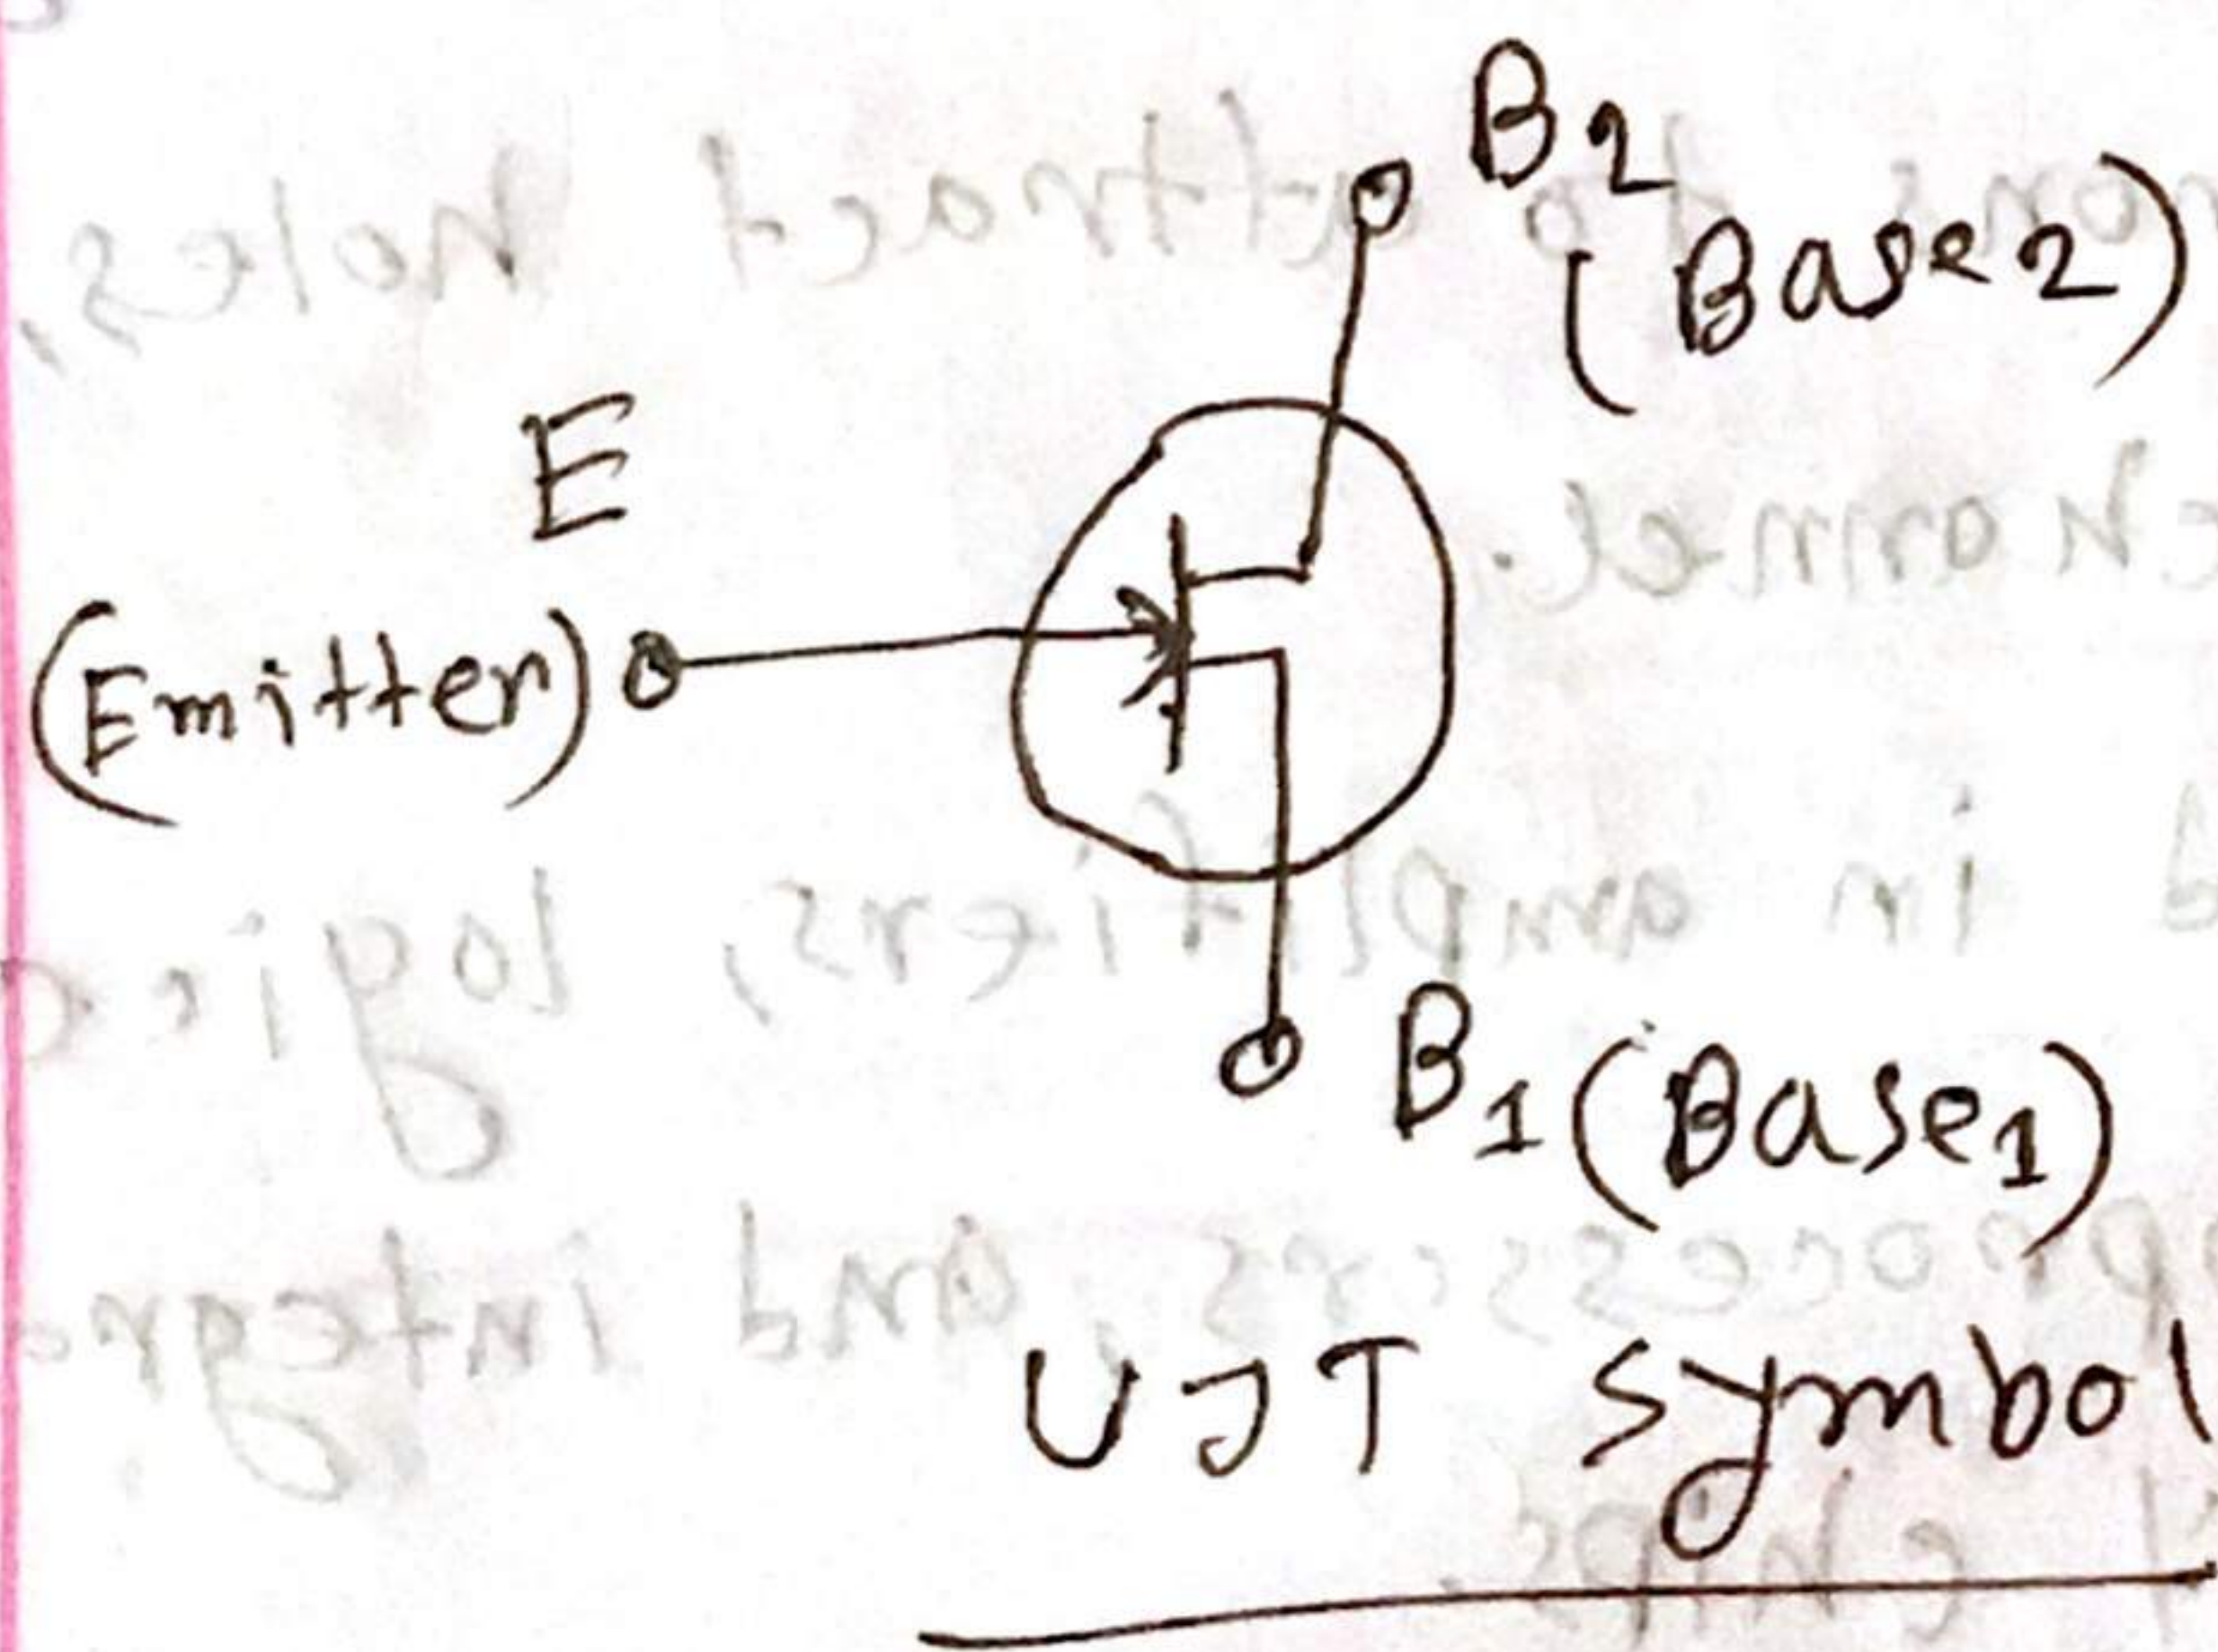 B2
(Base2)
E
(Emitter)
B1 (Base1)
UJT symbol